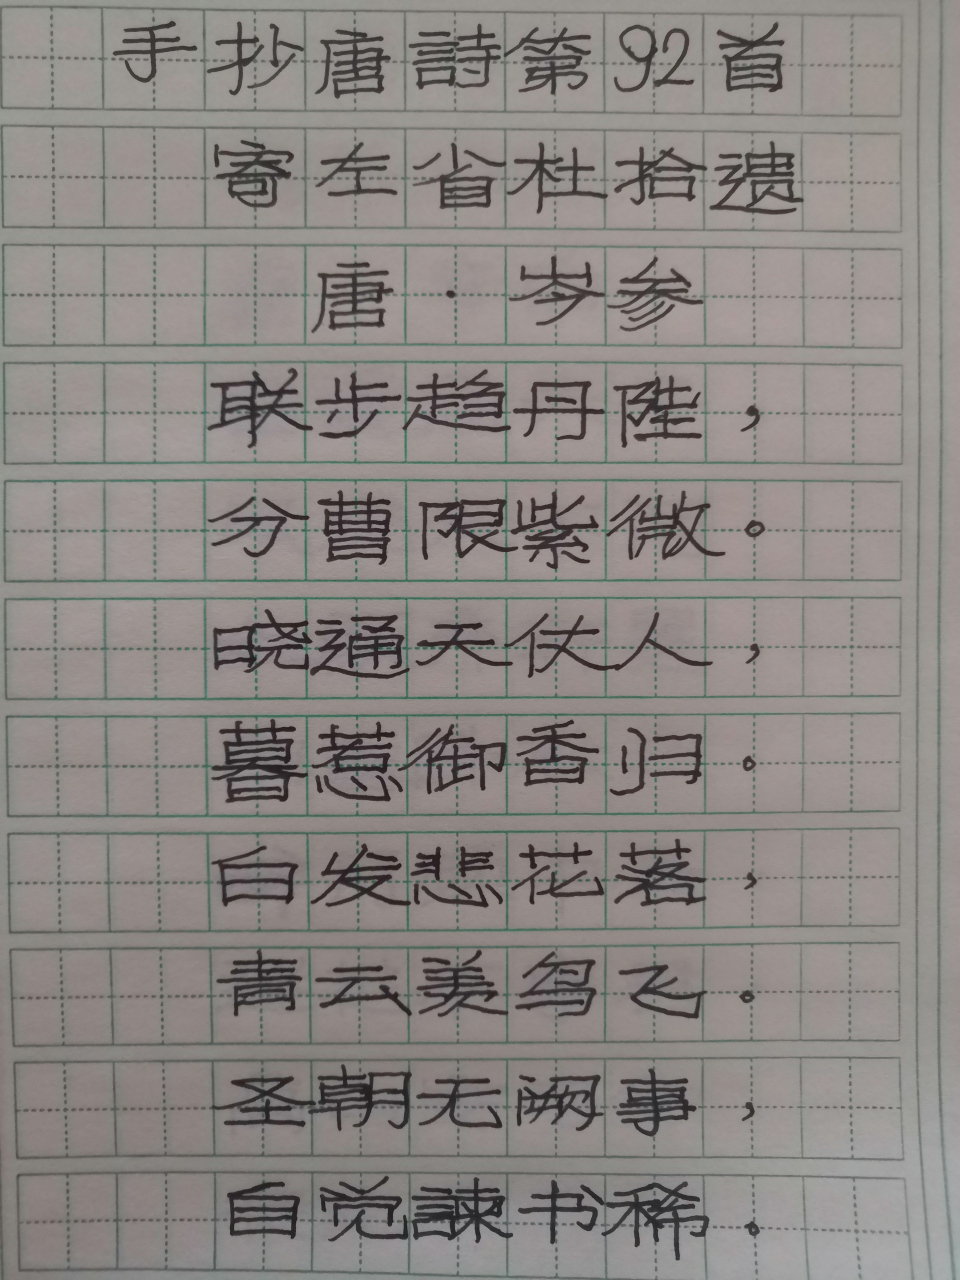 手抄唐詩第92首
寄左省杜拾遗
唐·岑参
联步趋丹陛，
分曹限紫微。
晓通天仗人，
暮惹御香归。
白发悲花落，
青云羡鸟飞。
圣朝无阙事，
自觉諫书稀。